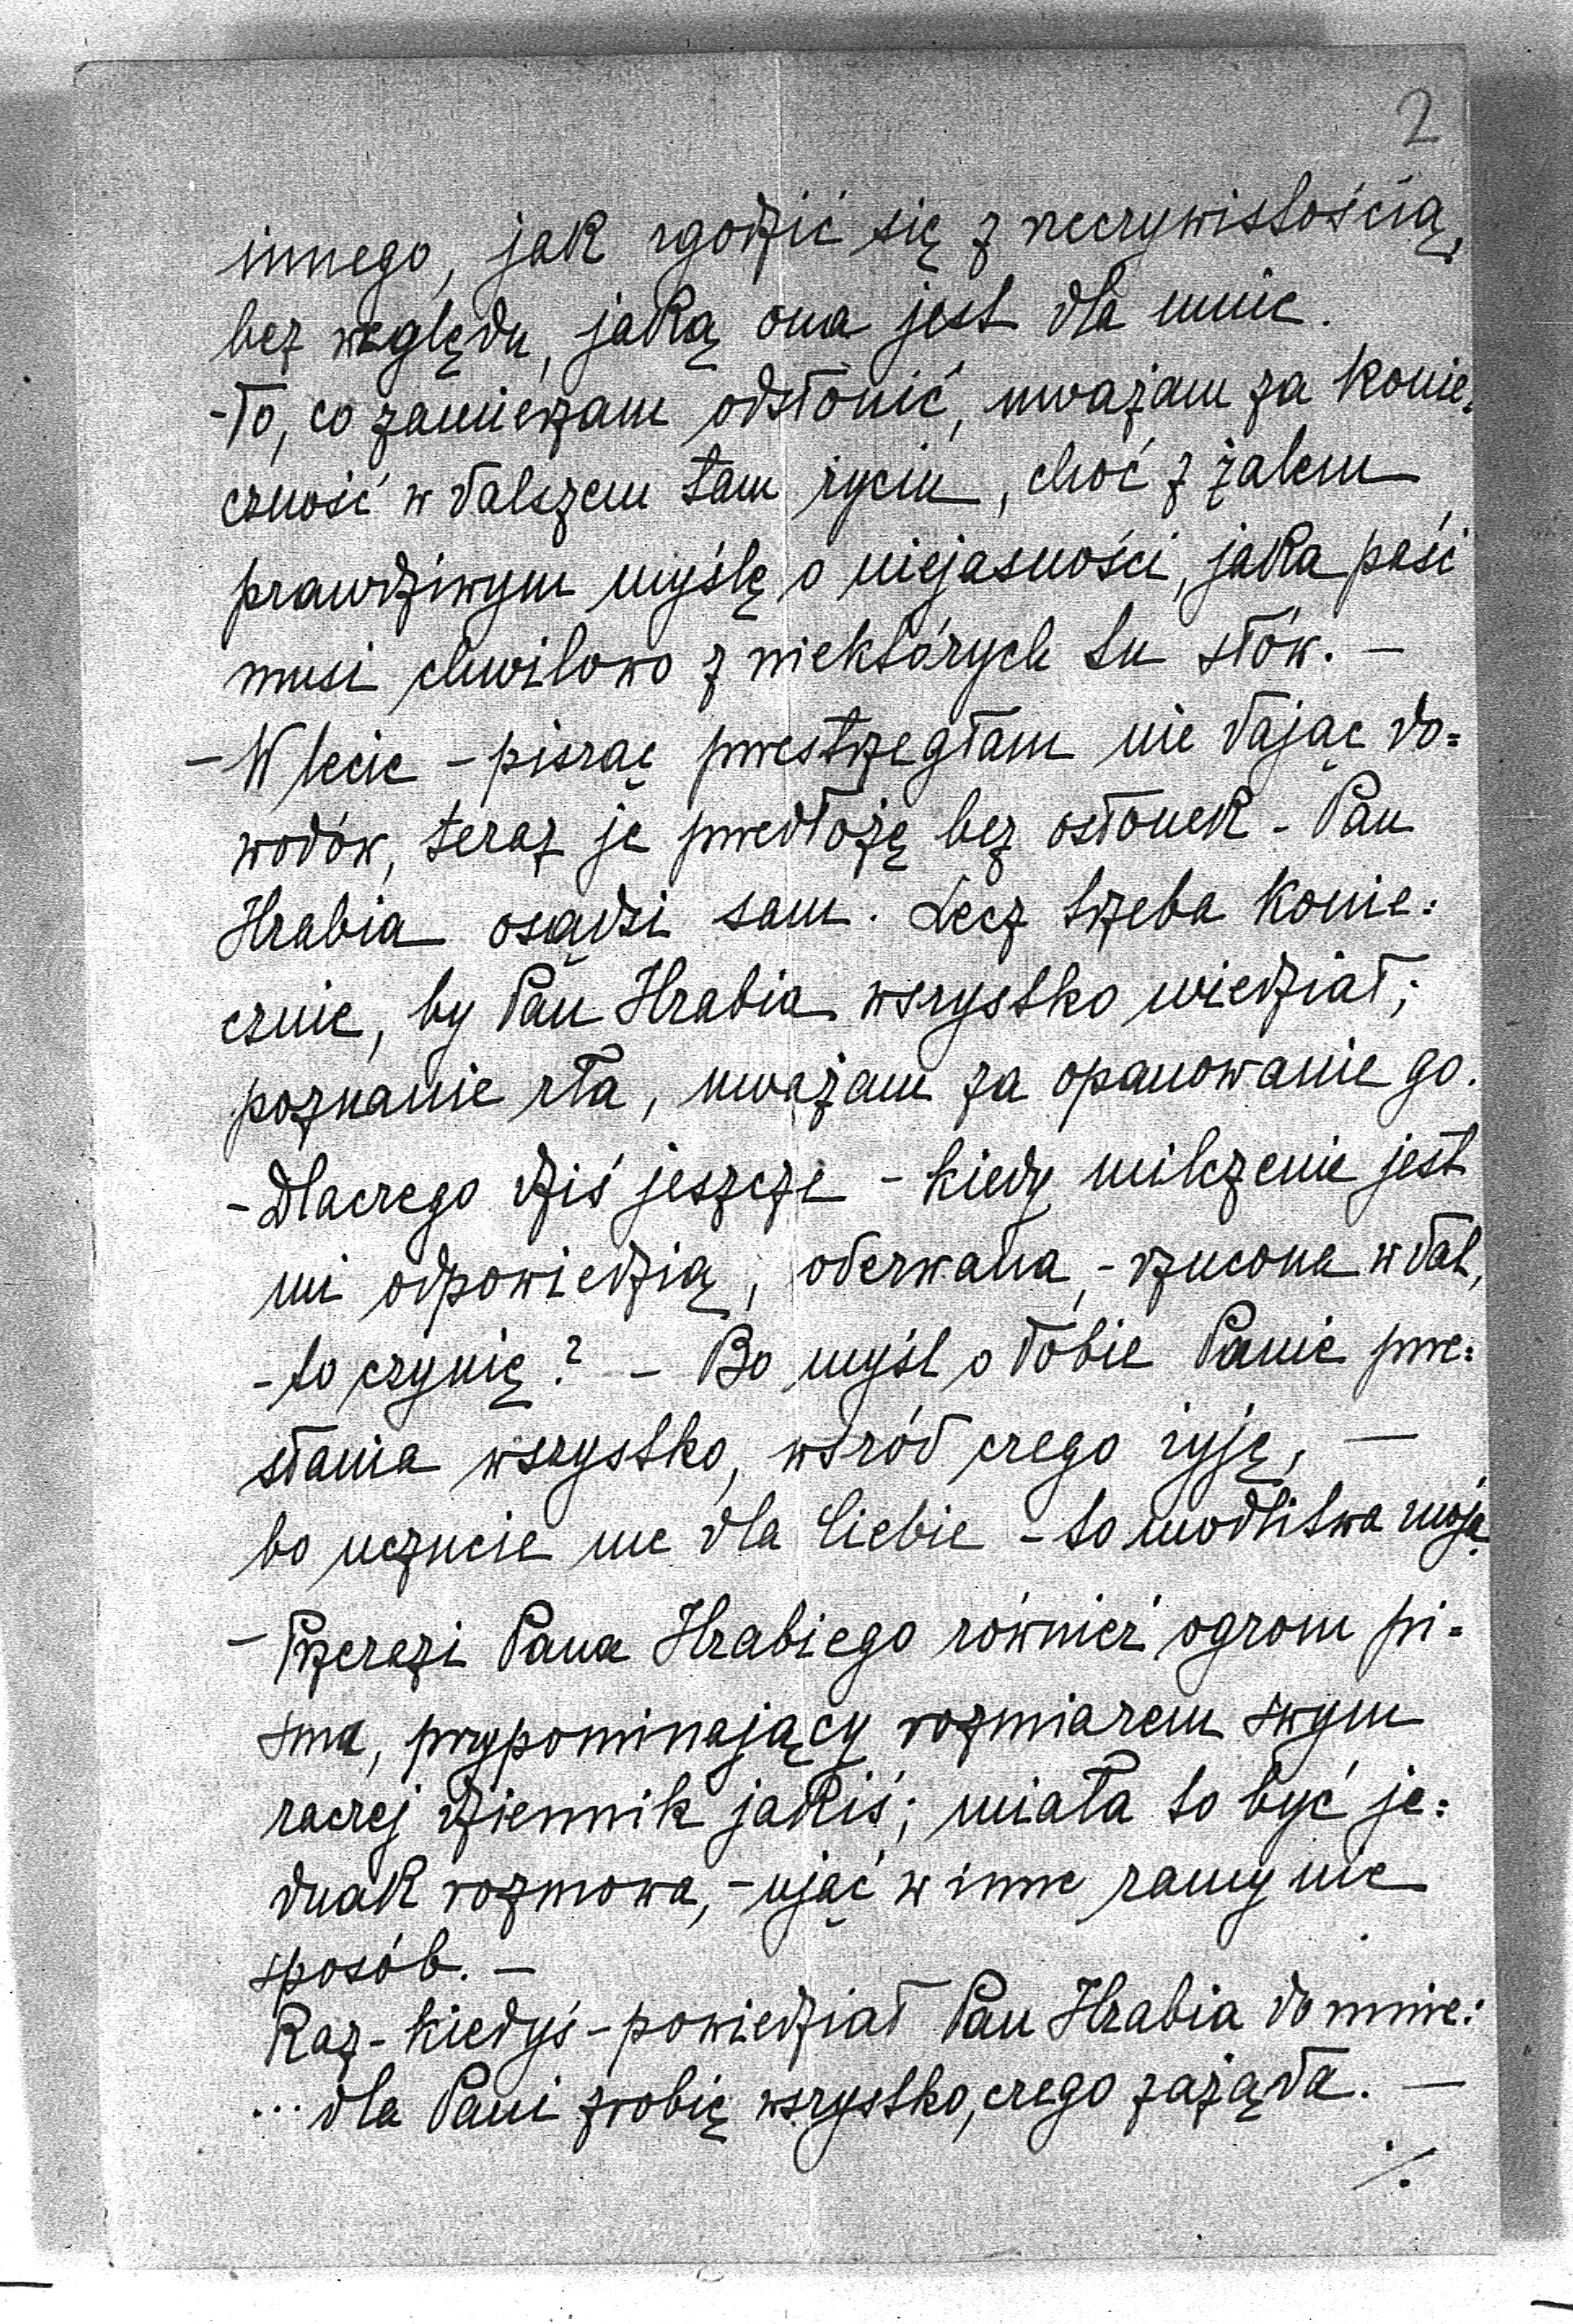 2
innego, jak zgodzić się z rzeczywistością,
bez względu, jaką ona jest dla mnie.
-To, co zamierzam odsłonić, uważam za konie-
czność w dalszem tam życiu, choć z żalem
prawdziwym myślę o niejasności, jaka paść
musi chwilowo z niektórych tu słów. —
— W lecie - pisząc przestrzegłam nie dając do=
wodów, teraz je przedłożę bez osłonek - Pan
Hrabia osądzi sam. Lecz trzeba konie=
cznie, by Pan Hrabia wszystko wiedział;
poznanie zła, uważam za opanowanie go.
- Dlaczego dziś jeszcze - kiedy milczenie jest
mi odpowiedzią, oderwana, - rzucona w dal,
- to czynię? - Bo myśl o Tobie Panie prze=
słania wszystko, wśród czego żyję, —
bo uczucie me dla Ciebie - to modlitwa moja.
- Przerazi Pana Hrabiego również ogrom pi-
sma, przypominający rozmiarem swym
raczej dziennik jakiś; miała to być je=
dnak rozmowa, - ująć w inne ramy nie
sposób. —
Raz - kiedyś - powiedział Pan Hrabia do mnie:
... dla Pani zrobię wszystko, czego zażąda. —
./.